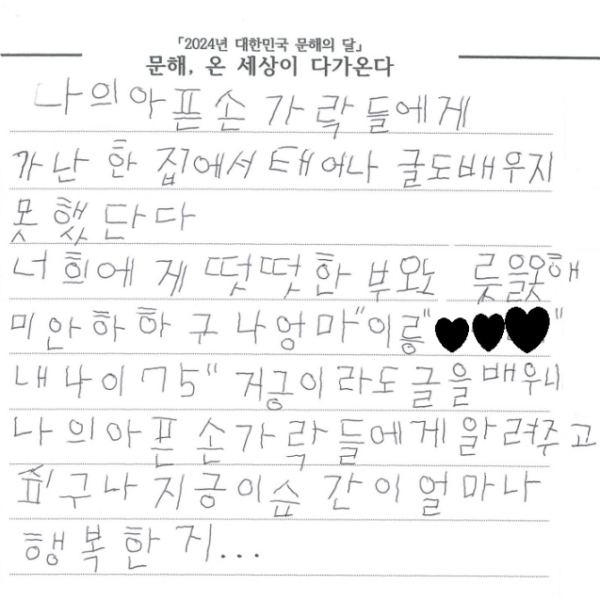 「2024년 대한민국 문해의 달」
문해, 온 세상이 다가온다
나의아픈손가락들에게
가난한 집에서 태어나 글도배우지
못했단다
너희에게 떳떳한 부모 못해
미안하하구나 엉마"이릉" "
내나이75" 지긍이라도 글을배우니
나의아픈손가락들에게알려주고
싶구나 지긍이숨간이얼마나
행복한지...